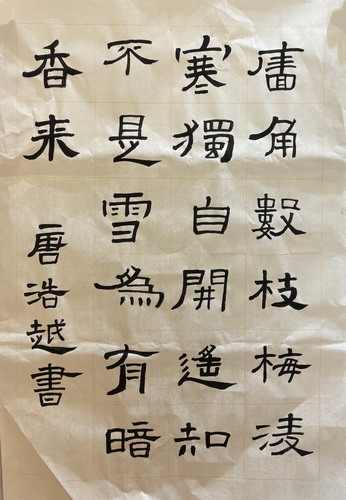 牆角數枝梅凌
寒獨自開遙知
不是雪為有暗
香来
唐浩越書